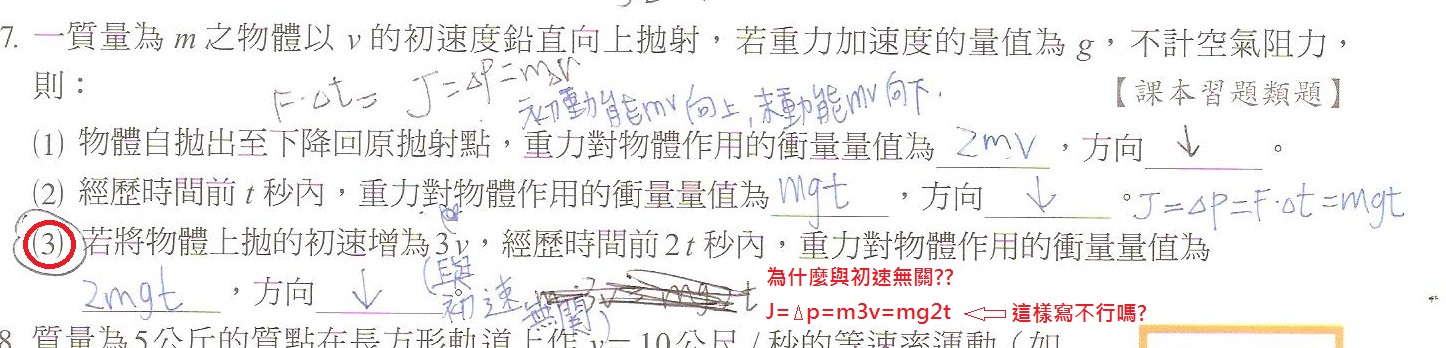 7. 一質量為 m 之物體以 v 的初速度鉛直向上拋射，若重力加速度的量值為 g，不計空氣阻力，
則： 【課本習題類題】
F·Δt= J=ΔP=mΔv
初動能mv向上,末動能mv向下.
(1) 物體自拋出至下降回原拋射點，重力對物體作用的衝量量值為 2mv ，方向 ↓ 。
(2) 經歷時間前 t 秒內，重力對物體作用的衝量量值為 mgt ，方向 ↓ 。J=ΔP=F·Δt=mgt
(3) 若將物體上拋的初速增為 3v，經歷時間前 2t 秒內，重力對物體作用的衝量量值為
2mgt ，方向 ↓ (與
初速
無關)
為什麼與初速無關??
J=Δp=m3v=mg2t ⇐ 這樣寫不行嗎?
8. 質量為5公斤的質點在長方形軌道上作 v=10公尺/秒的等速率運動（如